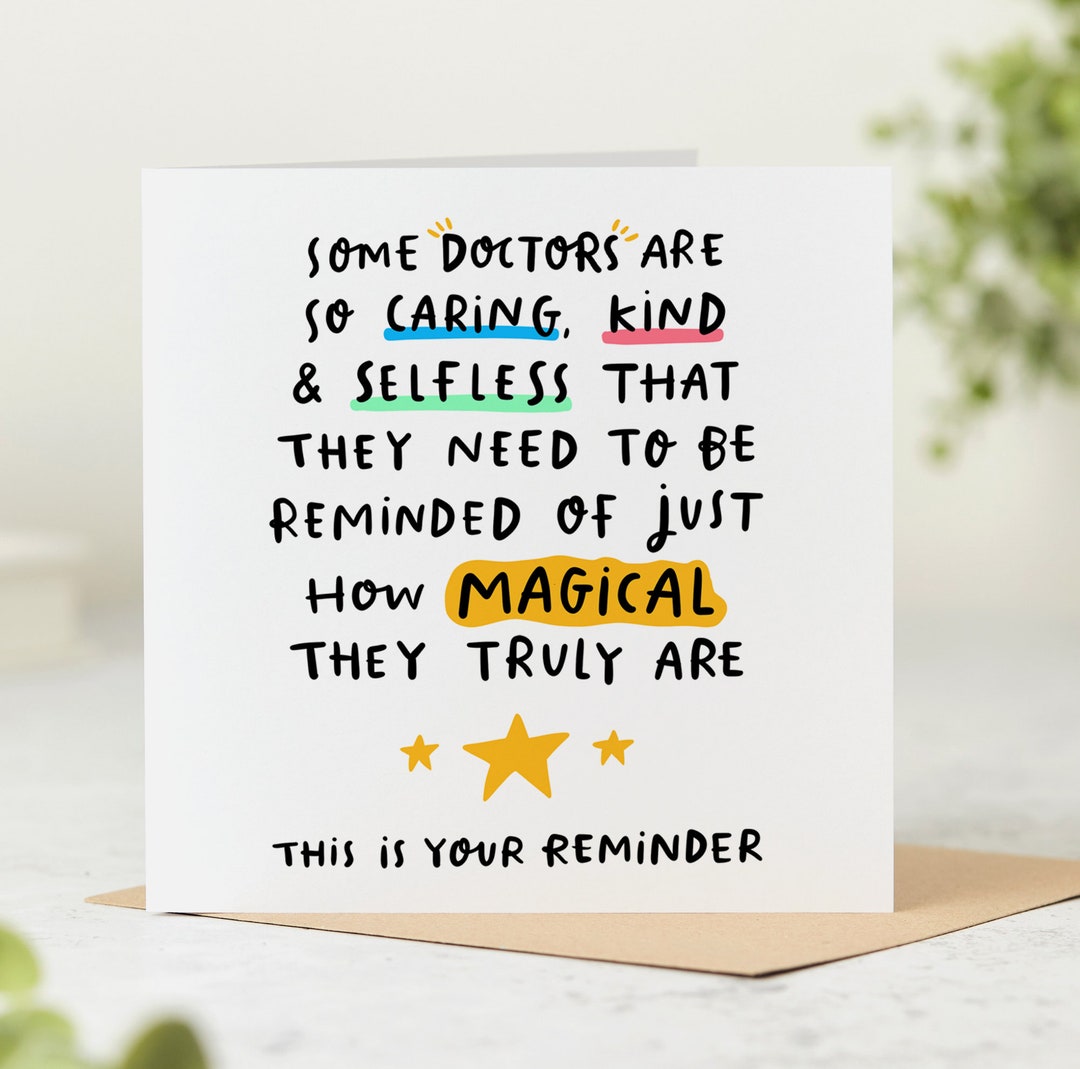 SOME DOCTORS ARE
SO CARiNG, KiND
& SELFLESS THAT
THEY NEED TO BE
REMiNDED OF JUST
HOW MAGiCAL
THEY TRULY ARE
THiS iS YOUR REMiNDER